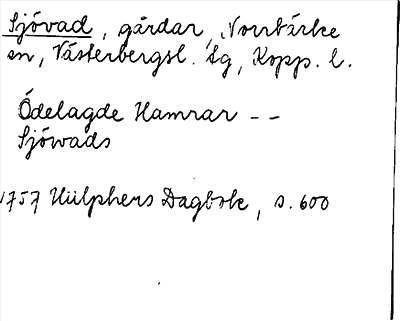 Sjövad, gårdar, Norrbärke
sn, Västerbergsl. dg, Kopp. l.
Ödelagde Hamrar --
Sjöwads
1757 Hülphers Dagbok, s. 600